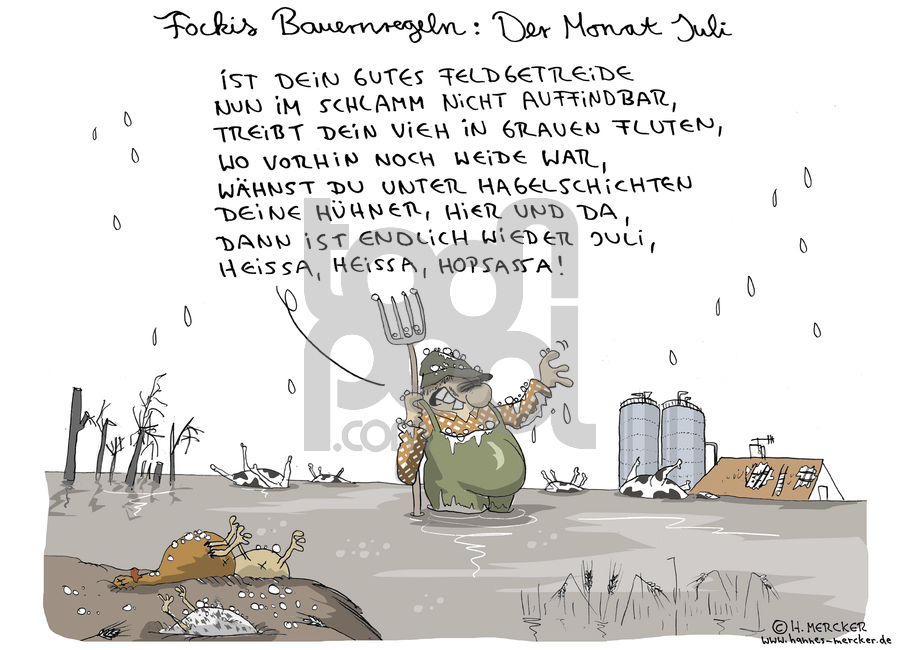 Fockis Bauernregeln: Der Monat Juli
IST DEIN GUTES FELDGETREIDE
NUN IM SCHLAMM NICHT AUFFINDBAR,
TREIBT DEIN VIEH IN GRAUEN FLUTEN,
WO VORHIN NOCH WEIDE WAR,
WÄHNST DU UNTER HAGELSCHICHTEN
DEINE HÜHNER, HIER UND DA,
DANN IST ENDLICH WIEDER JULI,
HEISSA, HEISSA, HOPSASSA!
toon
pool
.com
© H. MERCKER
www.hannes-mercker.de